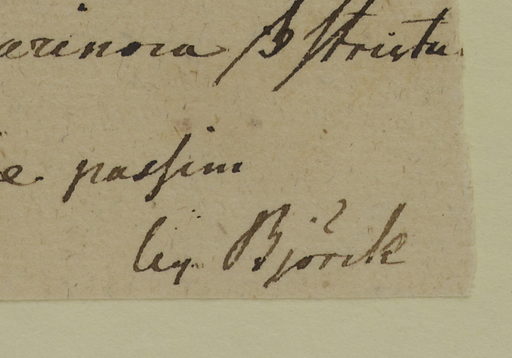 arinosa β stricta
e passim
leg. Björck